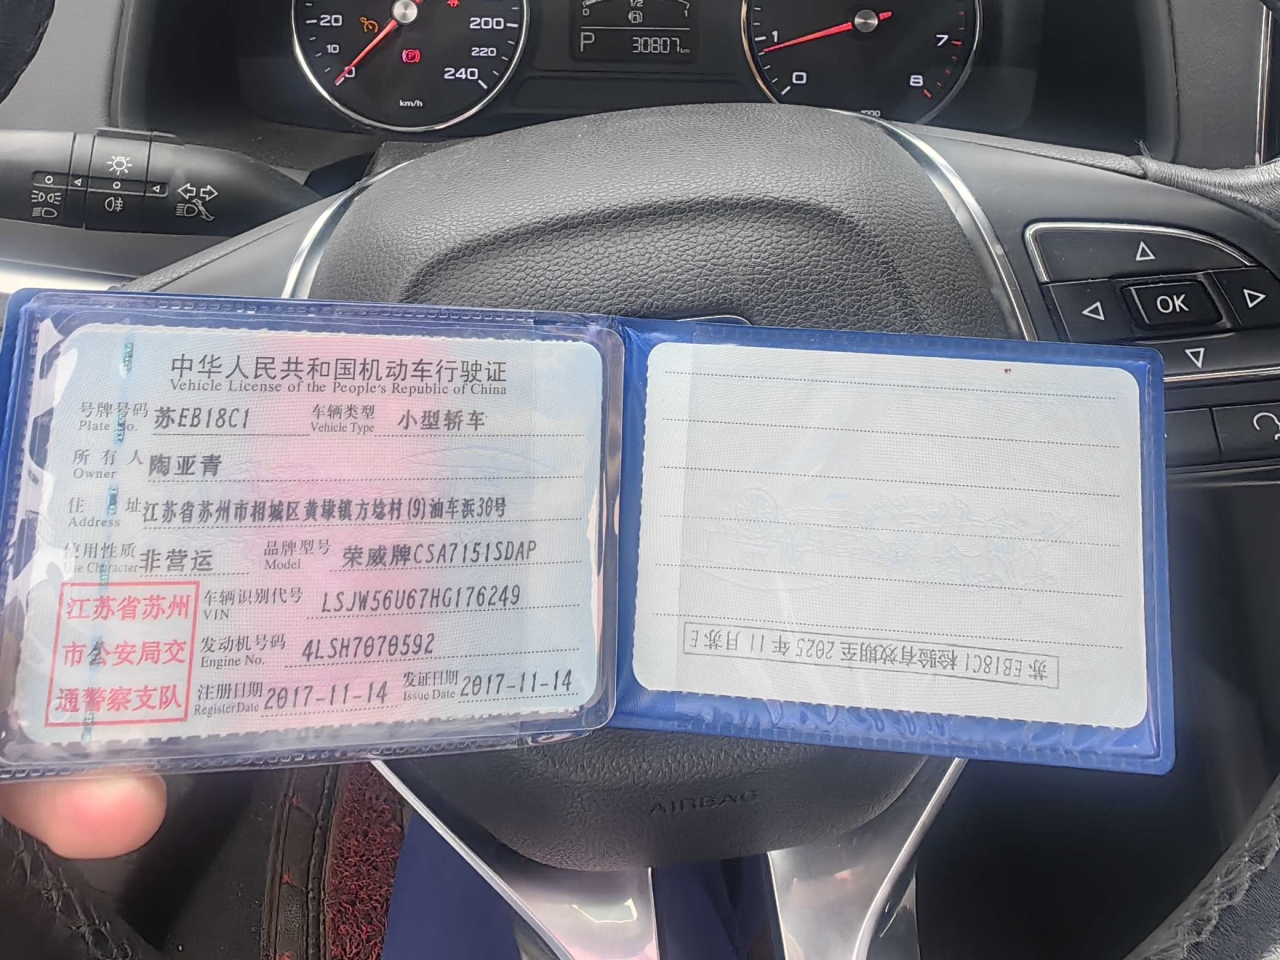 20
10
0
200
220
240
km/h
0
1/2
1
P 30807km
1
0
7
8
1000
OK
中华人民共和国机动车行驶证
Vehicle License of the People's Republic of China
号牌号码 苏EB18C1 车辆类型 小型轿车
Plate No. Vehicle Type
所有人 陶亚青
Owner
住址 江苏省苏州市相城区黄埭镇方埝村(9)油车浜30号
Address
使用性质 非营运 品牌型号 荣威牌CSA7151SDAP
Use Character Model
江苏省苏州
市公安局交
通警察支队
车辆识别代号 LSJW56U67HG176249
VIN
发动机号码 4LSH7070592
Engine No.
注册日期 2017-11-14 发证日期 2017-11-14
Register Date Issue Date
苏EB18C1 检验有效期至 2025 年 11 月 苏E
AIRBAG